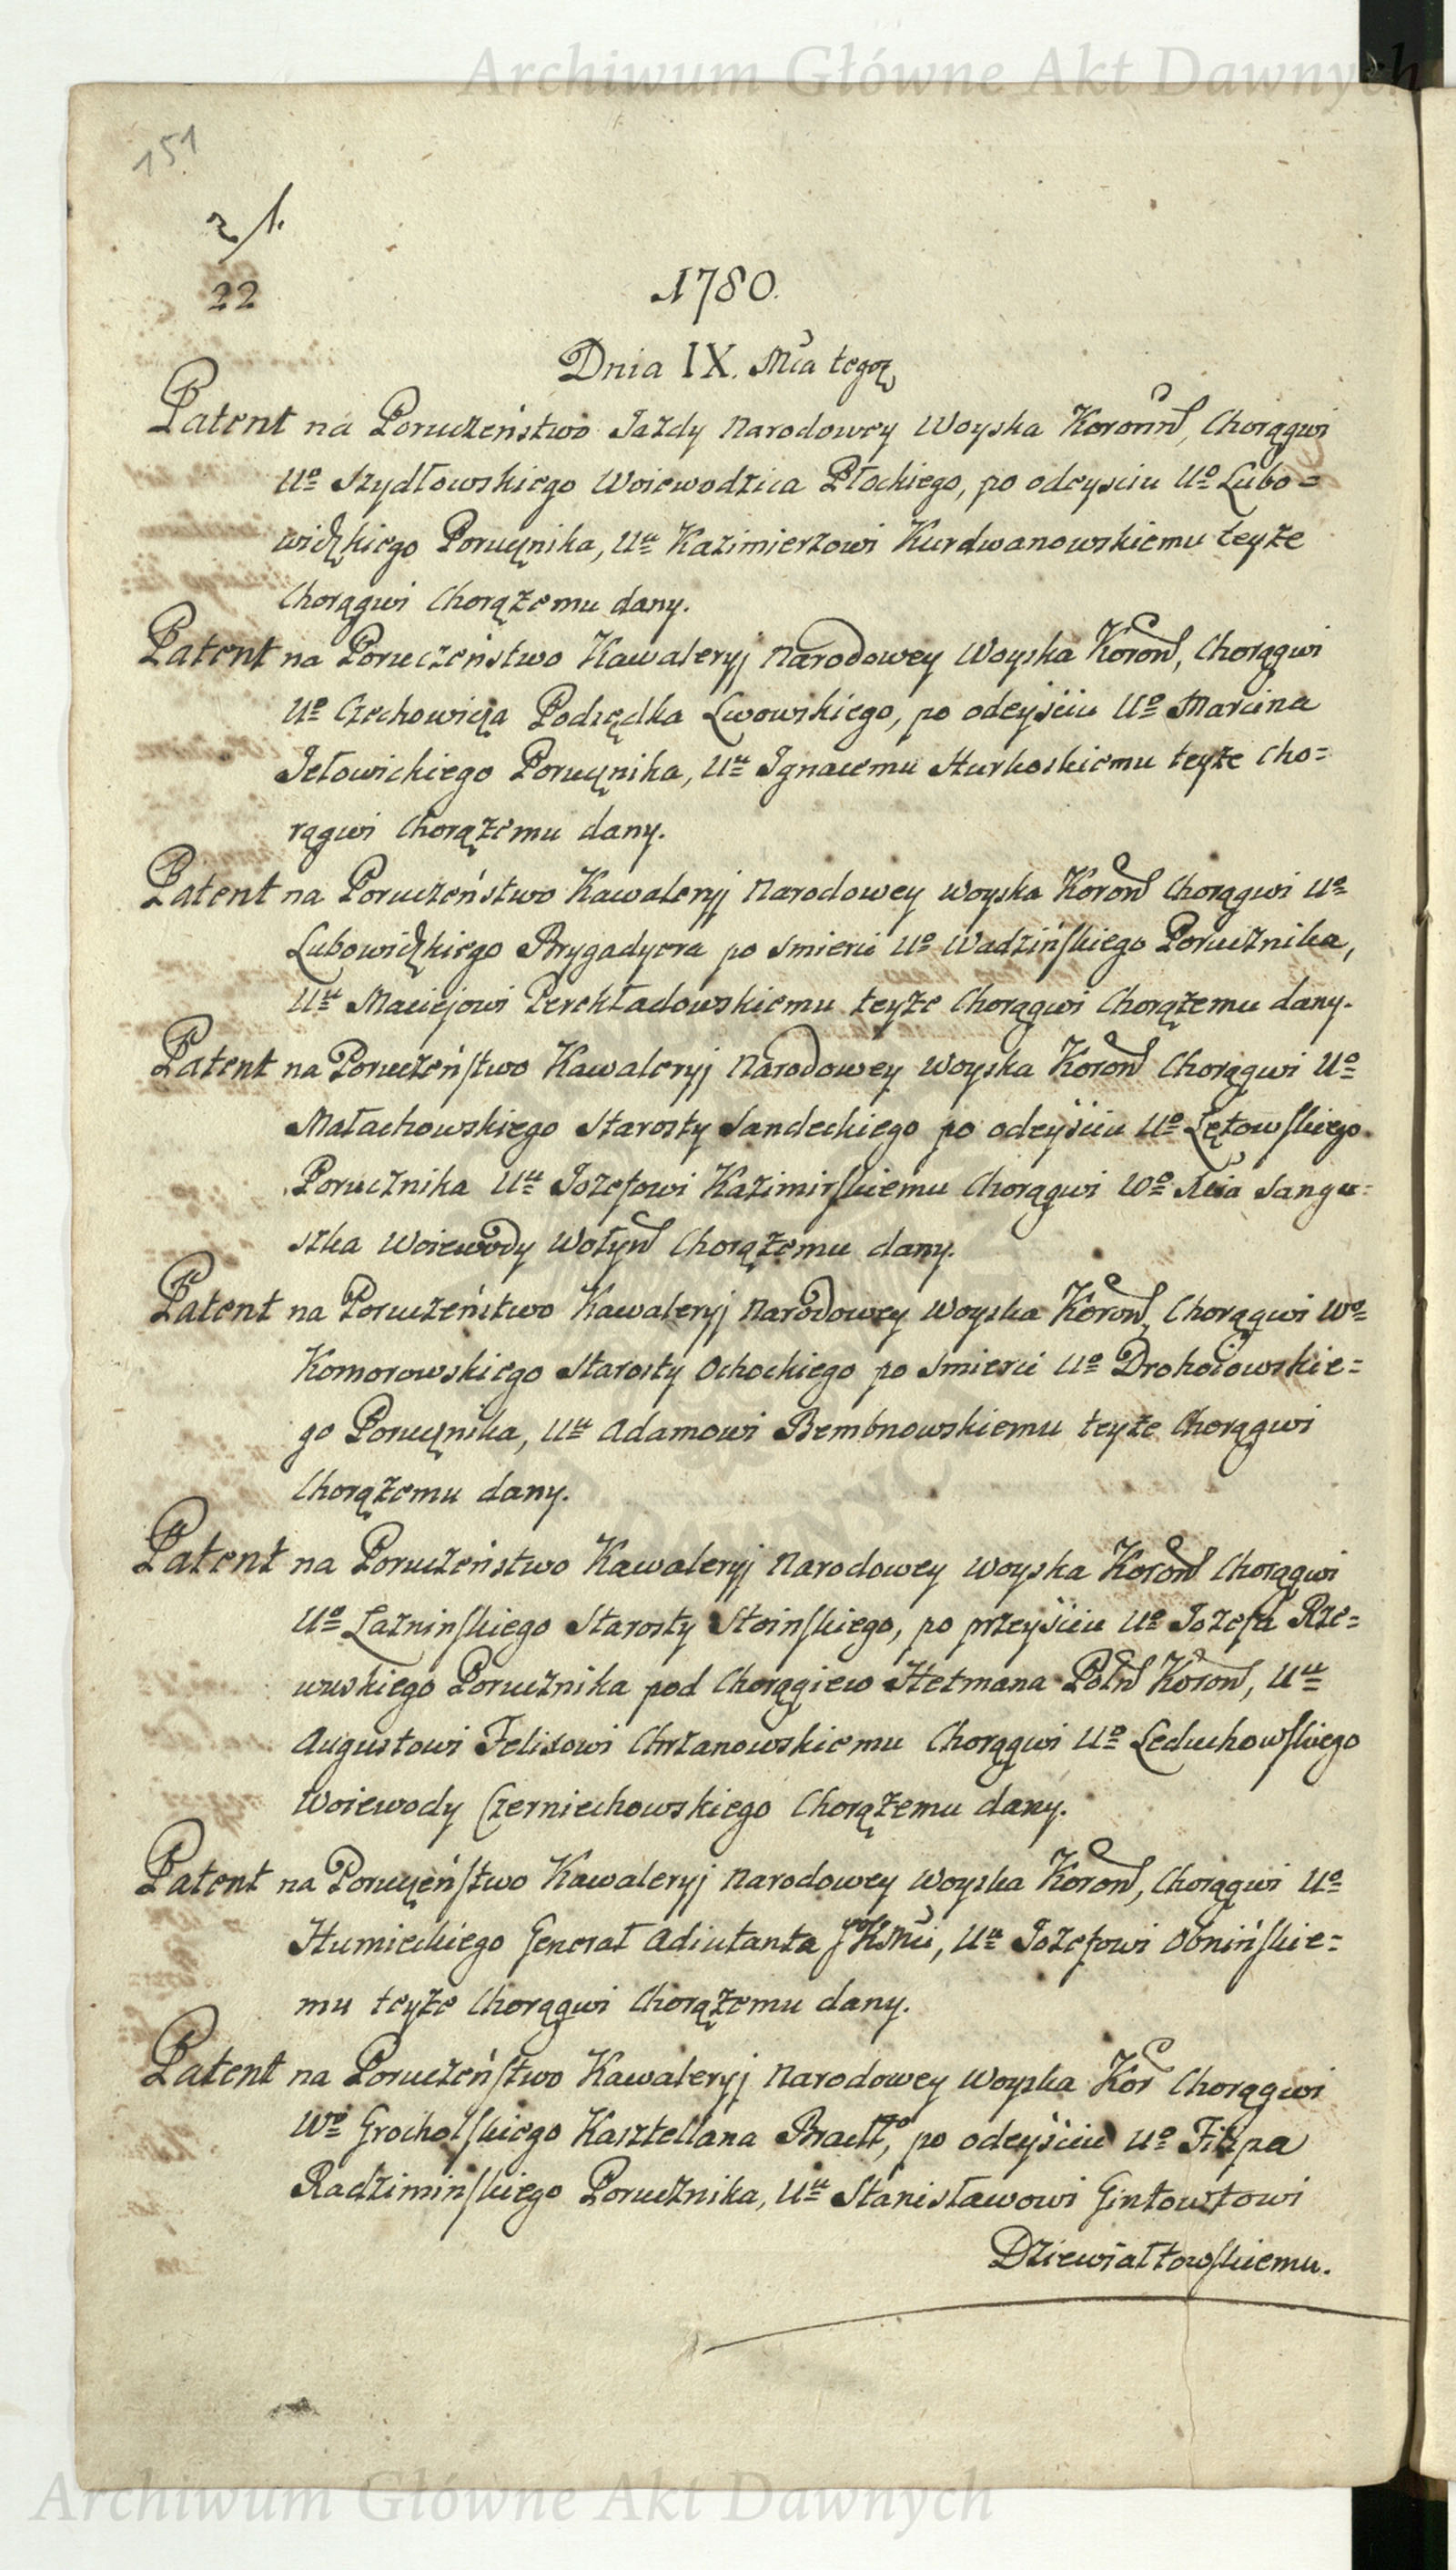 Archiwum Główne Akt Dawnych
151
22
1780.
Dnia IX. Mca tegoż
Patent na Poruczeństwo Jazdy Narodowey Woyska Koronn, Chorągwi
Uo Szydłowskiego Woiewodzica Płockiego, po odeysciu Uo Lubo=
widzkiego Porucznika, Uu Kazimierzowi Kurdwanowskiemu teyże
Chorągwi Chorążemu dany.
Patent na Poruczeństwo Kawaleryj Narodowey Woyska Koron, Chorągwi
Uo Czechowicza Podrzędka Lwowskiego, po odeyściu Uo Marcina
Jełowickiego Porucznika, Uu Ignacemu Hurkoskiemu teyże Cho=
rągwi Chorążemu dany.
Patent na Poruczeństwo Kawaleryj Narodowey Woyska Koron Chorągwi Uo
Lubowidzkiego Brygadyera po smierci Uo Wadzińskiego Porucznika,
Uu Maciejowi Perekładowskiemu teyże Chorągwi Chorążemu dany.
Patent na Poruczeństwo Kawaleryj Narodowey Woyska Koron Chorągwi Uo
Małachowskiego Starosty Sandeckiego po odeyściu Uo Łętowskiego
Porucznika Uu Jozefowi Kazimirskiemu Chorągwi Wo Xcia Sangu=
szka Woiewody Wołyn Chorążemu dany.
Patent na Poruczeństwo Kawaleryj Narodowey Woyska Koron, Chorągwi Wo
Komorowskiego Starosty Ochockiego po smierci Uo Drohoiowskie=
go Porucznika, Uu Adamowi Bembnowskiemu teyże Chorągwi
Chorążemu dany.
Patent na Poruczeństwo Kawaleryj Narodowey Woyska Koron Chorągwi
Uo Łazninskiego Starosty Stoinskiego, po przeyściu Uo Jozefa Rze=
wuskiego Porucznika pod Chorągiew Hetmana Poln Koron, Uu
Augustowi Felixowi Chrzanowskiemu Chorągwi Uo Leduchowskiego
Woiewody Czerniechowskiego Chorążemu dany.
Patent na Poruczeństwo Kawaleryj Narodowey Woyska Koron, Chorągwi Uo
Humieckiego Generał Adiutanta JKMci, Uu Jozefowi Obnińskie=
mu teyże Chorągwi Chorążemu dany.
Patent na Poruczeństwo Kawaleryj Narodowey Woyska Kor Chorągwi
Wo Grocholskiego Kasztellana Bracłgo, po odeyściu Uo Filipa
Radziminskiego Porucznika, Uu Stanisławowi Gintowtowi
Dziewiałtowskiemu.
Archiwum Główne Akt Dawnych